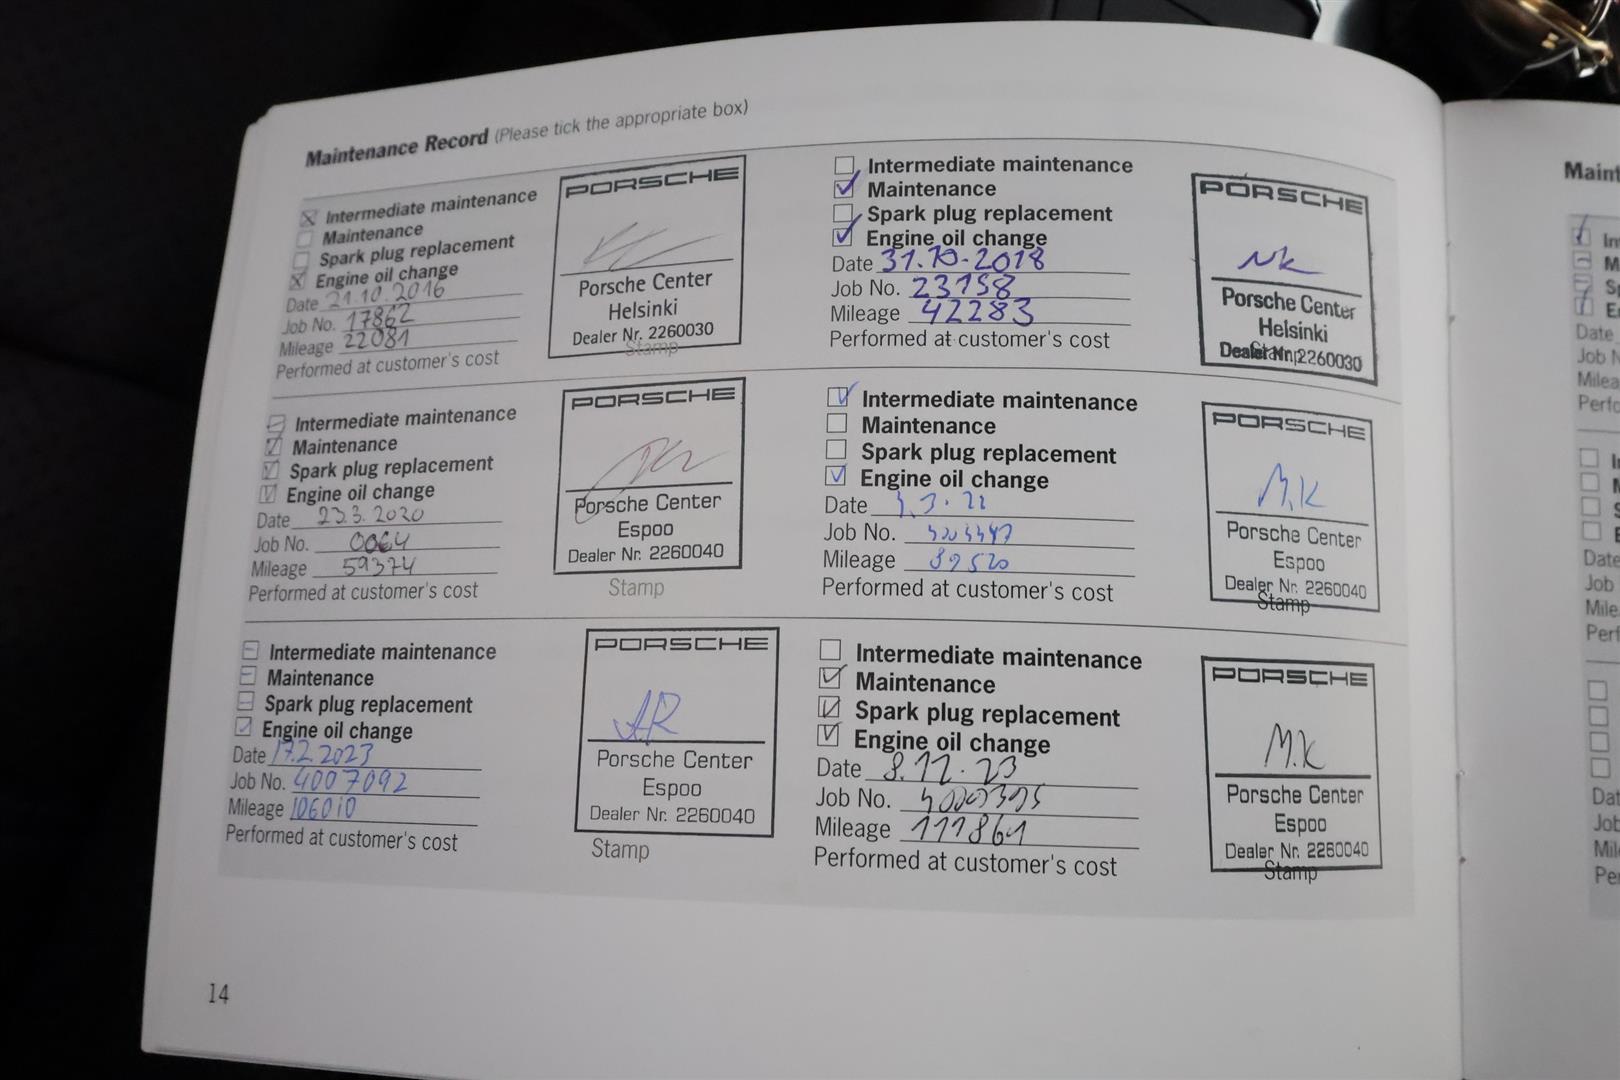 Maintenance Record (Please tick the appropriate box)
Intermediate maintenance
Maintenance
Spark plug replacement
Engine oil change
Date 21.10.2016
Job No. 17862
Mileage 22081
Performed at customer's cost
PORSCHE
Porsche Center
Helsinki
Dealer Nr. 2260030
Stamp
Intermediate maintenance
Maintenance
Spark plug replacement
Engine oil change
Date 31.10.2018
Job No. 23158
Mileage 42283
Performed at customer's cost
PORSCHE
NK
Porsche Center
Helsinki
Dealer Nr. 2260030
Stamp
Intermediate maintenance
Maintenance
Spark plug replacement
Engine oil change
Date 23.3.2020
Job No. 0064
Mileage 59374
Performed at customer's cost
PORSCHE
Porsche Center
Espoo
Dealer Nr. 2260040
Stamp
Intermediate maintenance
Maintenance
Spark plug replacement
Engine oil change
Date
Job No.
Mileage 89520
Performed at customer's cost
PORSCHE
M.K
Porsche Center
Espoo
Dealer Nr. 2260040
Stamp
Intermediate maintenance
Maintenance
Spark plug replacement
Engine oil change
Date 17.2.2023
Job No. 4007092
Mileage 106010
Performed at customer's cost
PORSCHE
AR
Porsche Center
Espoo
Dealer Nr. 2260040
Stamp
Intermediate maintenance
Maintenance
Spark plug replacement
Engine oil change
Date 8.12.23
Job No.
Mileage 111861
Performed at customer's cost
PORSCHE
M.K
Porsche Center
Espoo
Dealer Nr. 2260040
Stamp
14
Maint
In
M
Sp
E
Date
Job N
Milea
Perfo
Date
Job
Mile
Perf
Dat
Job
Mil
Pe